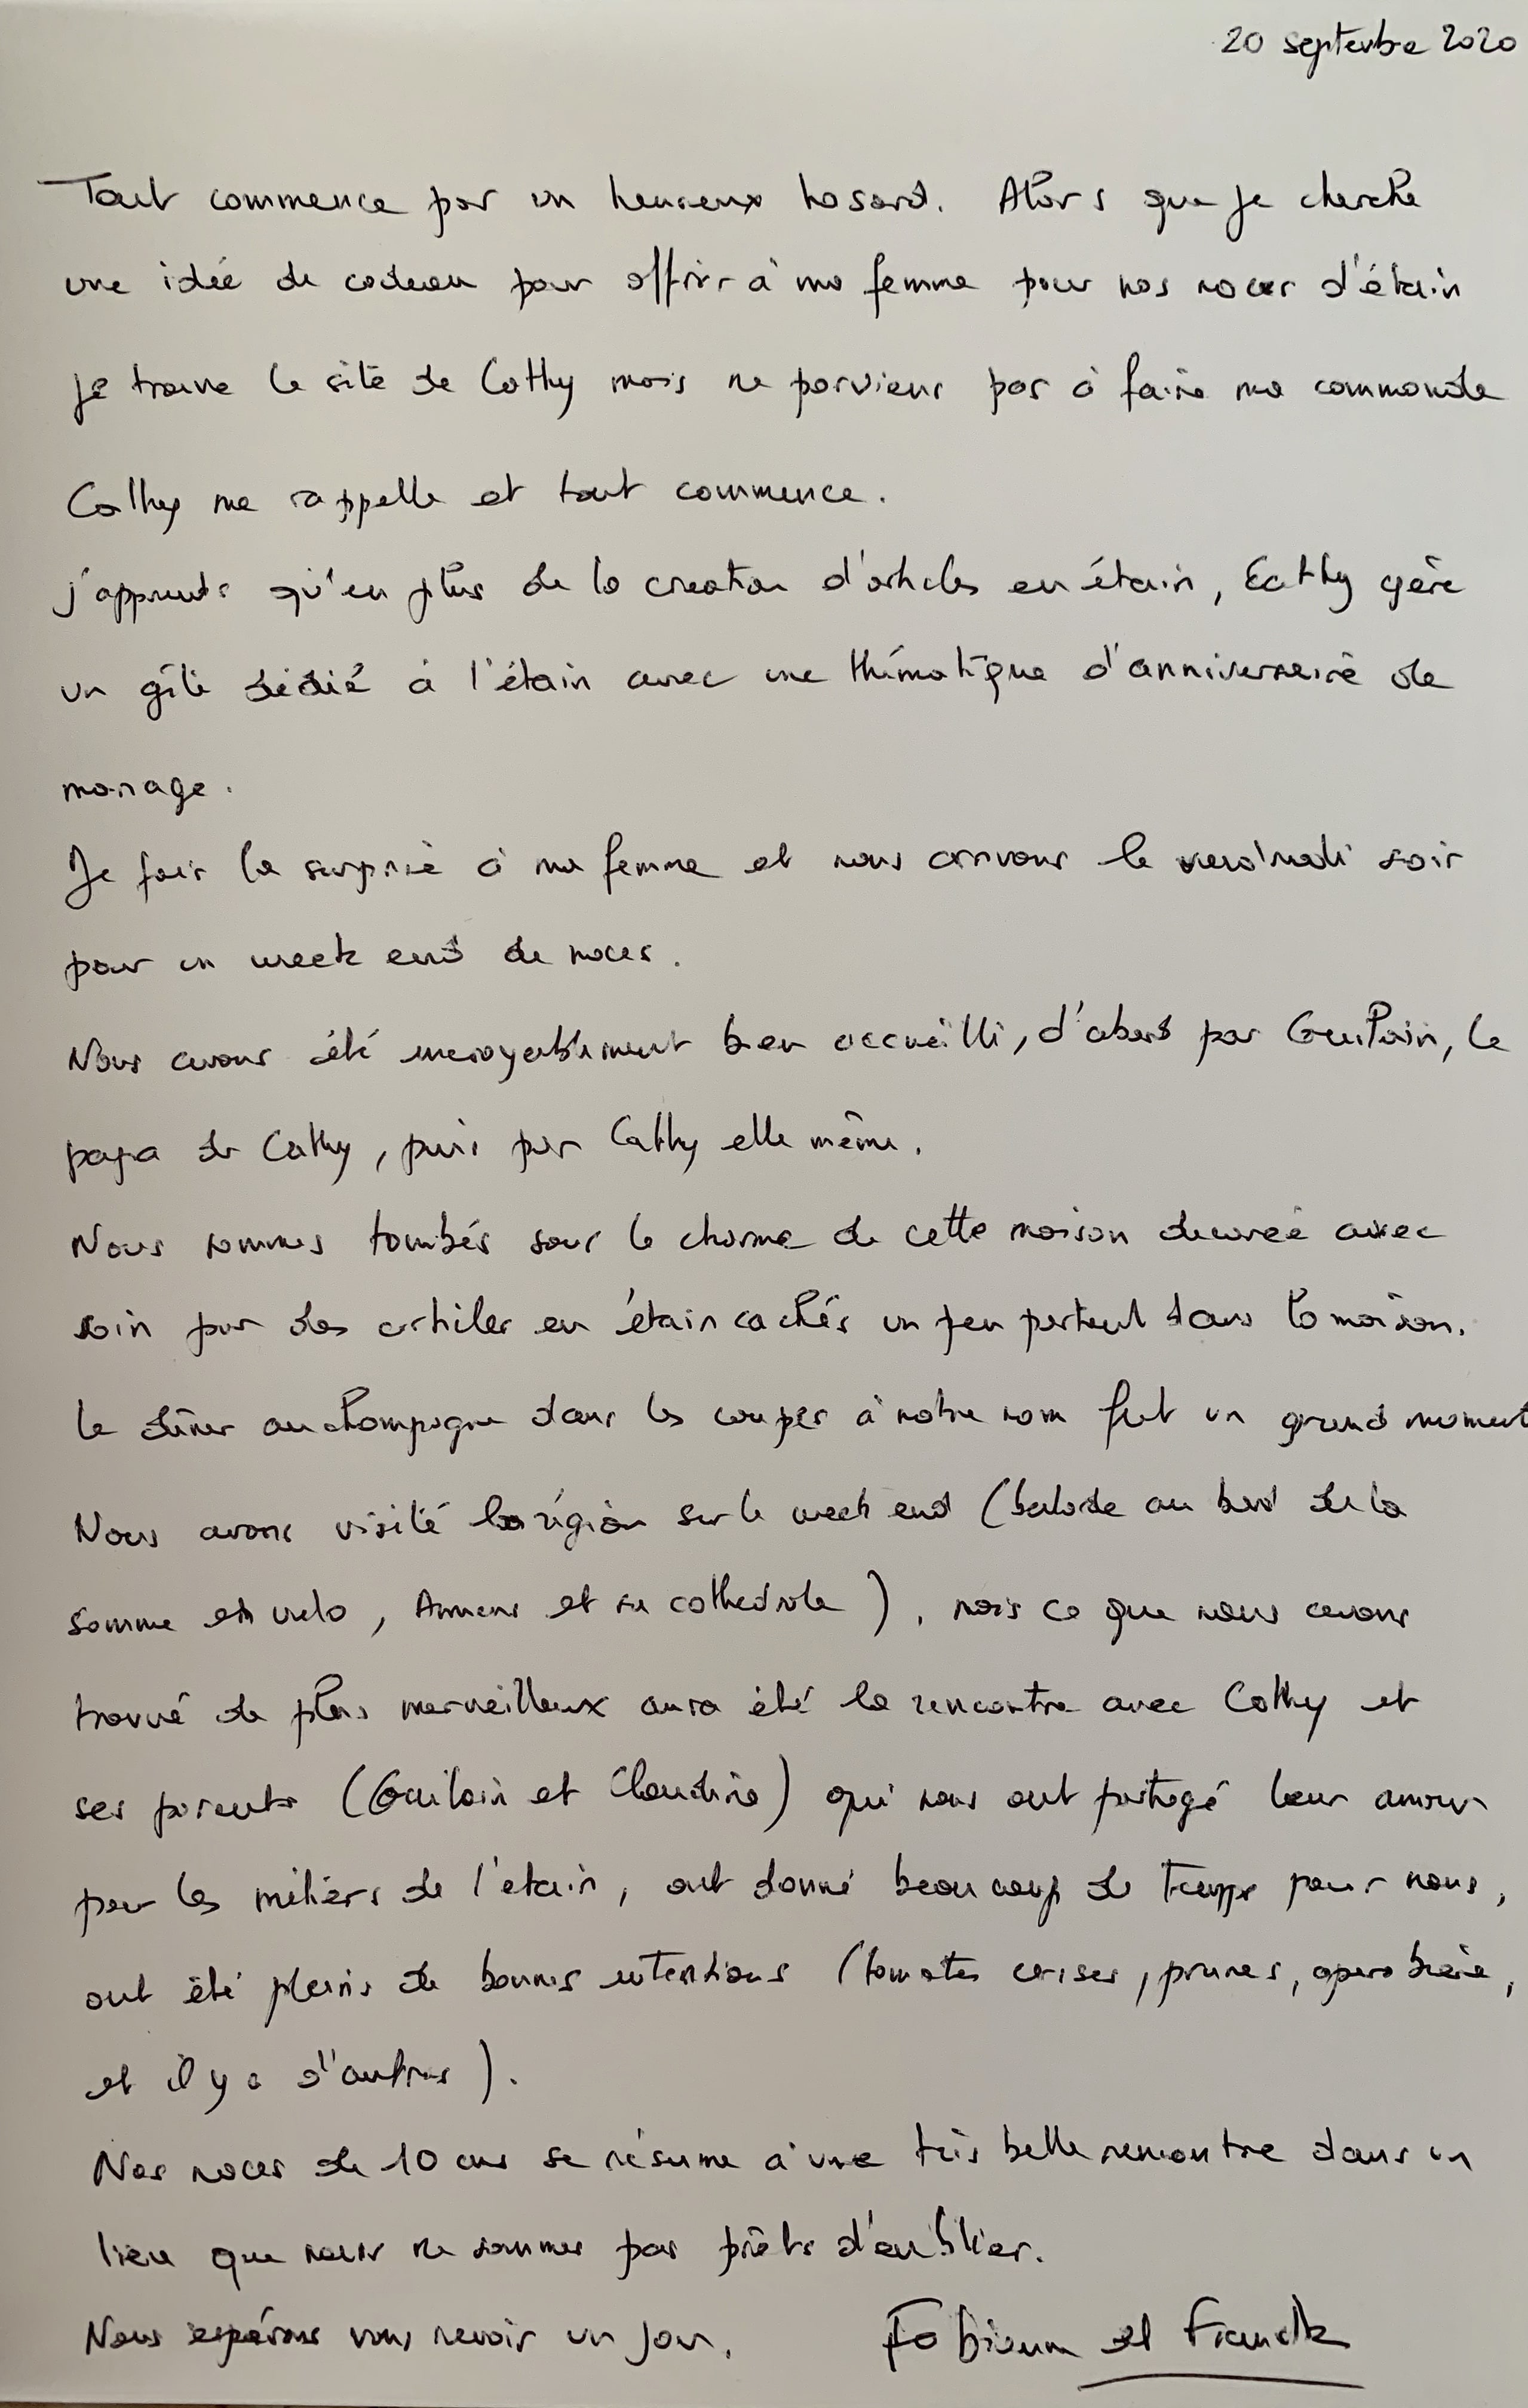 20 septembre 2020
Tout commence par un heureux hasard. Alors que je cherche
une idée de cadeau pour offrir à ma femme pour nos noces d'étain
je trouve le site de Cathy mais ne parviens pas à faire ma commande
Cathy me rappelle et tout commence.
j'apprends qu'en plus de la creation d'articles en étain, Cathy gère
un gîte dédié à l'étain avec une thématique d'anniversaire de
mariage.
Je fais la surprise à ma femme et nous arrivons le vendredi soir
pour un week end de noces.
Nous avons été incroyablement bien accueilli, d'abord par Guilain, le
papa de Cathy, puis par Cathy elle même.
Nous sommes tombés sous le charme de cette maison decorée avec
soin par des articles en étain cachés un peu partout dans la maison.
Le dîner au champagne dans les coupes à notre nom fut un grand moment
Nous avons visité la région sur le week end (balade au bord de la
somme en velo, Amiens et sa cathedrale), mais ce que nous avons
trouvé de plus merveilleux aura été la rencontre avec Cathy et
ses parents (Guilain et Claudine) qui nous ont partagé leur amour
pour les métiers de l'etain, ont donné beaucoup de temps pour nous,
ont été pleins de bonnes intentions (tomates cerises, prunes, apero bière,
et il y a d'autres).
Nos noces de 10 ans se résume à une très belle rencontre dans un
lieu que nous ne sommes pas prêts d'oublier.
Nous espérons vous revoir un jour. Fabienne et Franck